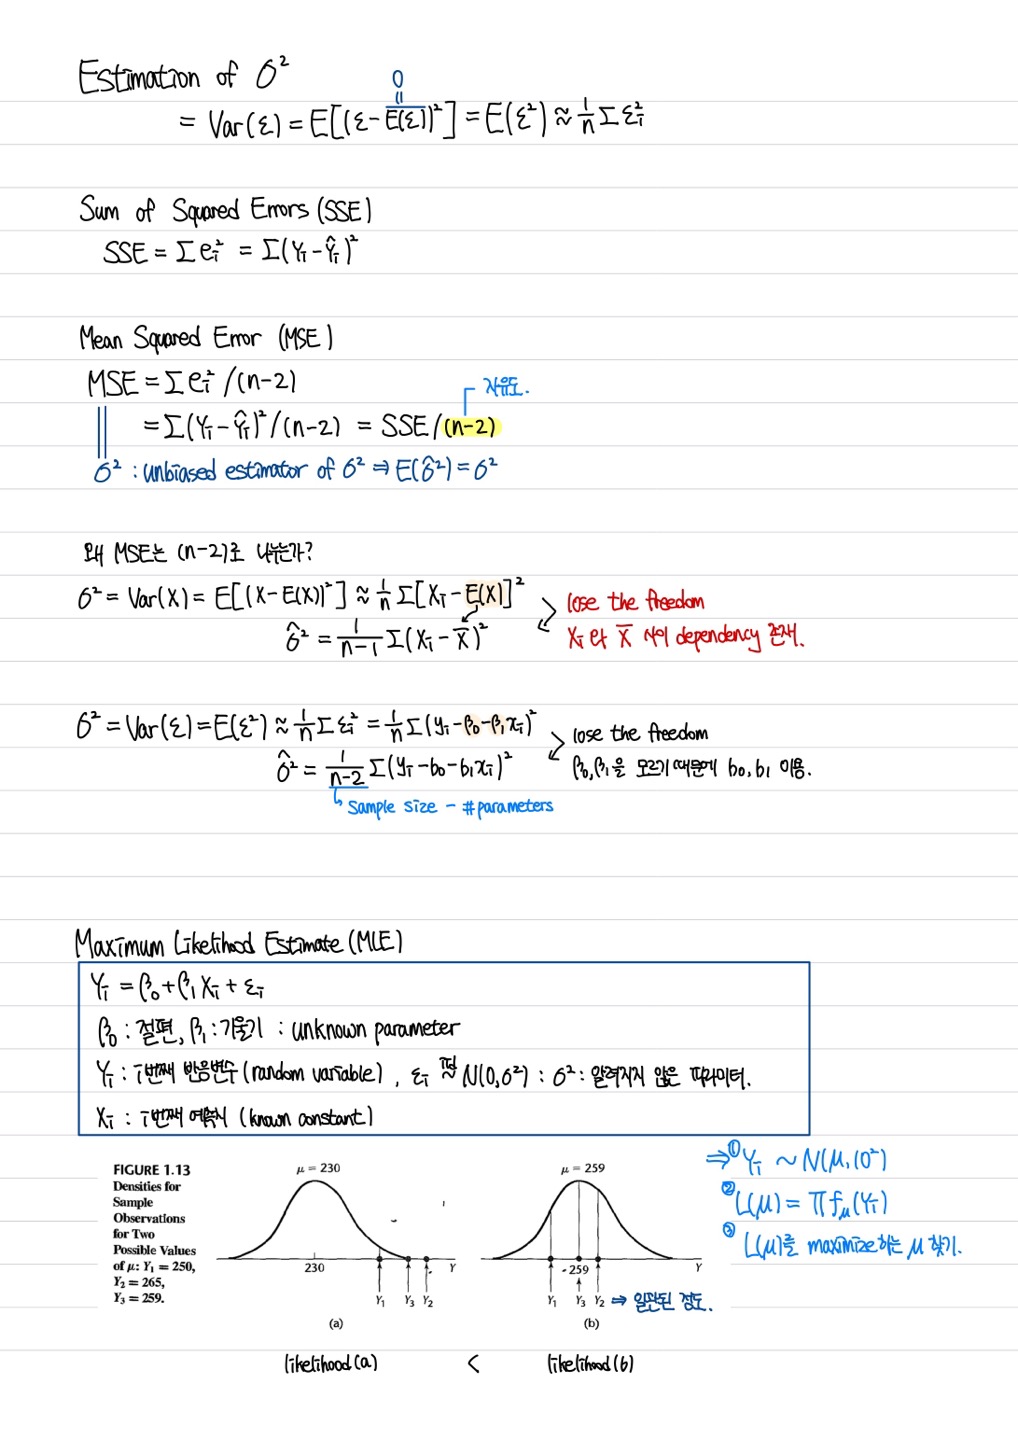 Estimation of σ²
0
॥
= Var(ε) = E[(ε-E(ε))²] = E(ε²) ≈ 1/n Σ εᵢ²
Sum of Squared Errors (SSE)
SSE = Σeᵢ² = Σ(Yᵢ-Ŷᵢ)²
Mean Squared Error (MSE)
MSE = Σeᵢ² /(n-2)
자유도.
= Σ(Yᵢ-Ŷᵢ)²/(n-2) = SSE/(n-2)
σ² : unbiased estimator of σ² ⇒ E(σ̂²) = σ²
왜 MSE는 (n-2)로 나누는가?
σ² = Var(X) = E[(X-E(X))²] ≈ 1/n Σ[Xᵢ-E(X)]²
lose the freedom
σ̂² = 1/(n-1) Σ(Xᵢ-X̄)²
Xᵢ와 X̄ 사이 dependency 존재.
σ² = Var(ε) = E(ε²) ≈ 1/n Σ εᵢ² = 1/n Σ(yᵢ-β₀-β₁xᵢ)²
lose the freedom
σ̂² = 1/(n-2) Σ(yᵢ-b₀-b₁xᵢ)²
β₀,β₁을 모르기 때문에 b₀,b₁ 이용.
↳ Sample size - #parameters
Maximum Likelihood Estimate (MLE)
Yᵢ = β₀+β₁Xᵢ+εᵢ
β₀ : 절편, β₁ : 기울기 : unknown parameter
Yᵢ : i번째 반응변수 (random variable), εᵢ iid ~ N(0,σ²) : σ² : 알려지지 않은 파라미터.
Xᵢ : i번째 예측치 (known constant)
FIGURE 1.13
Densities for
Sample
Observations
for Two
Possible Values
of μ: Y₁ = 250,
Y₂ = 265,
Y₃ = 259.
μ = 230
230
Y
Y₁ Y₃ Y₂
(a)
μ = 259
259
Y
Y₁ Y₃ Y₂
⇒ 일관된 정도.
(b)
⇒ ① Yᵢ ~ N(μ,10²)
② L(μ) = Πfμ(Yᵢ)
③ L(μ)를 maximize하는 μ 찾기.
likelihood(a) < likelihood(b)